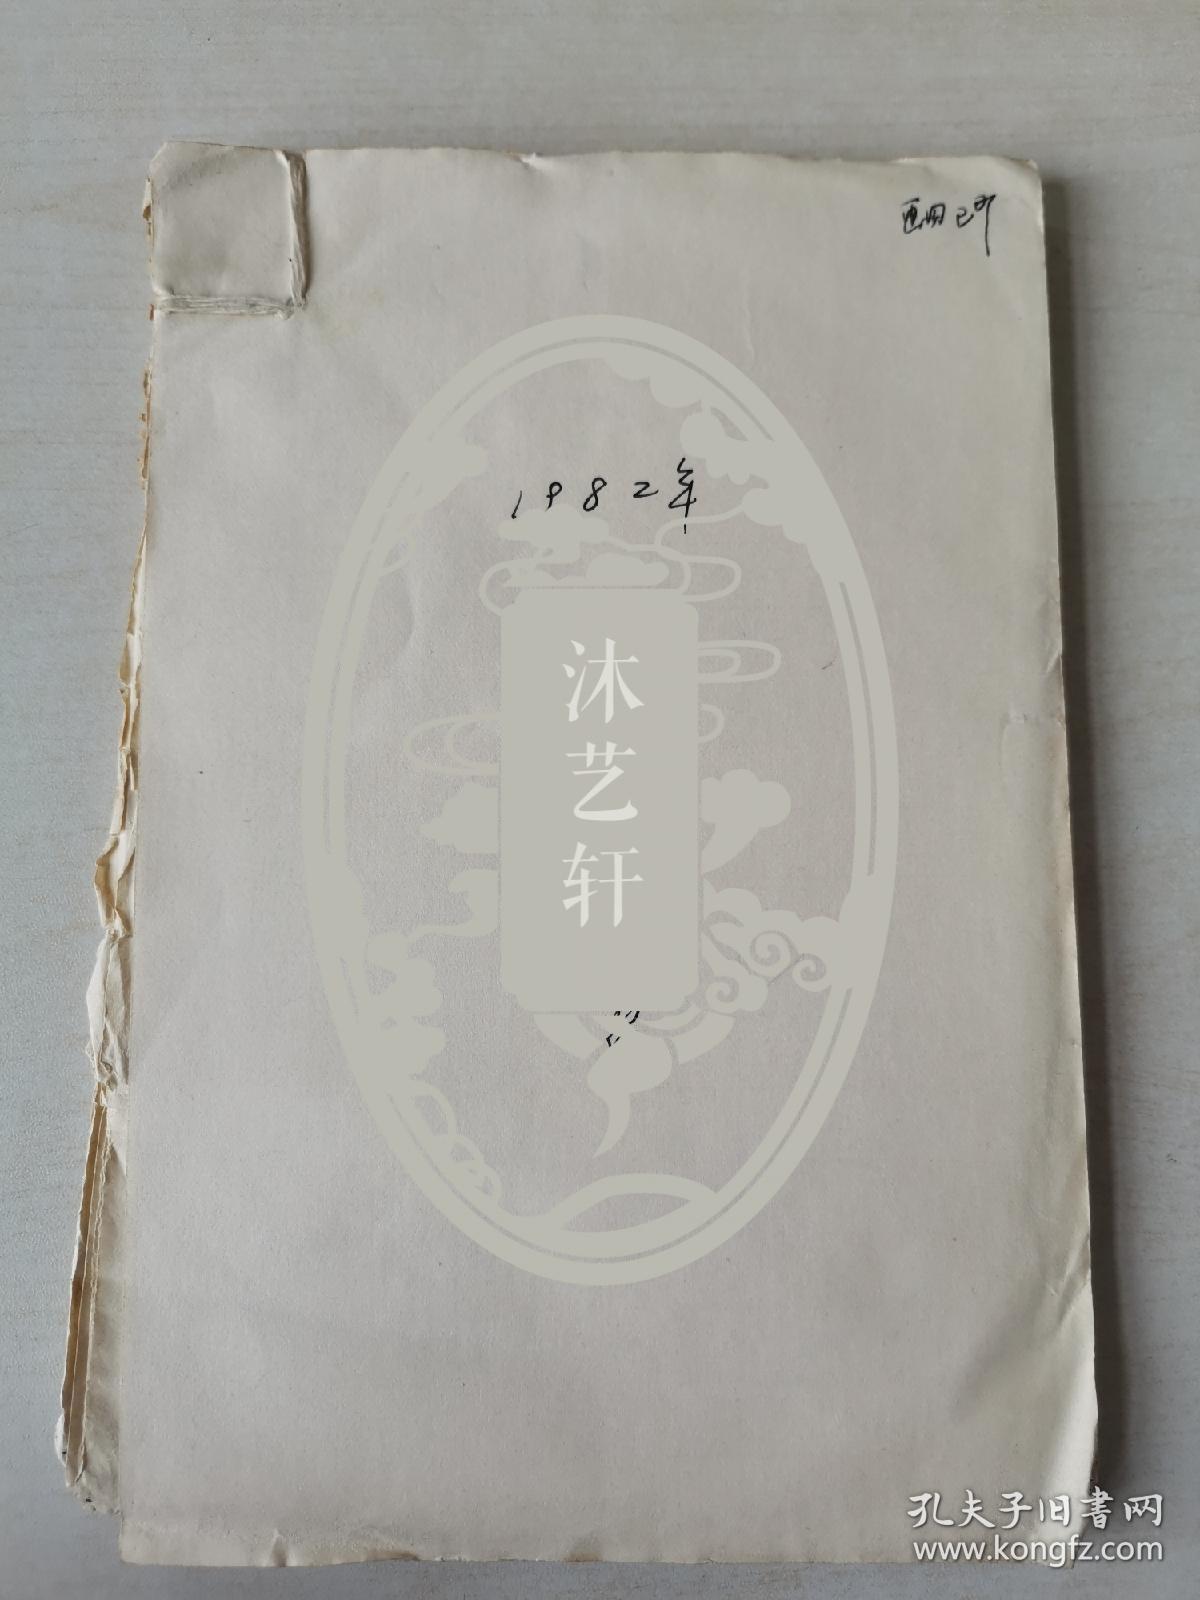 1982年
沐艺轩
孔夫子旧書网
www.kongfz.com